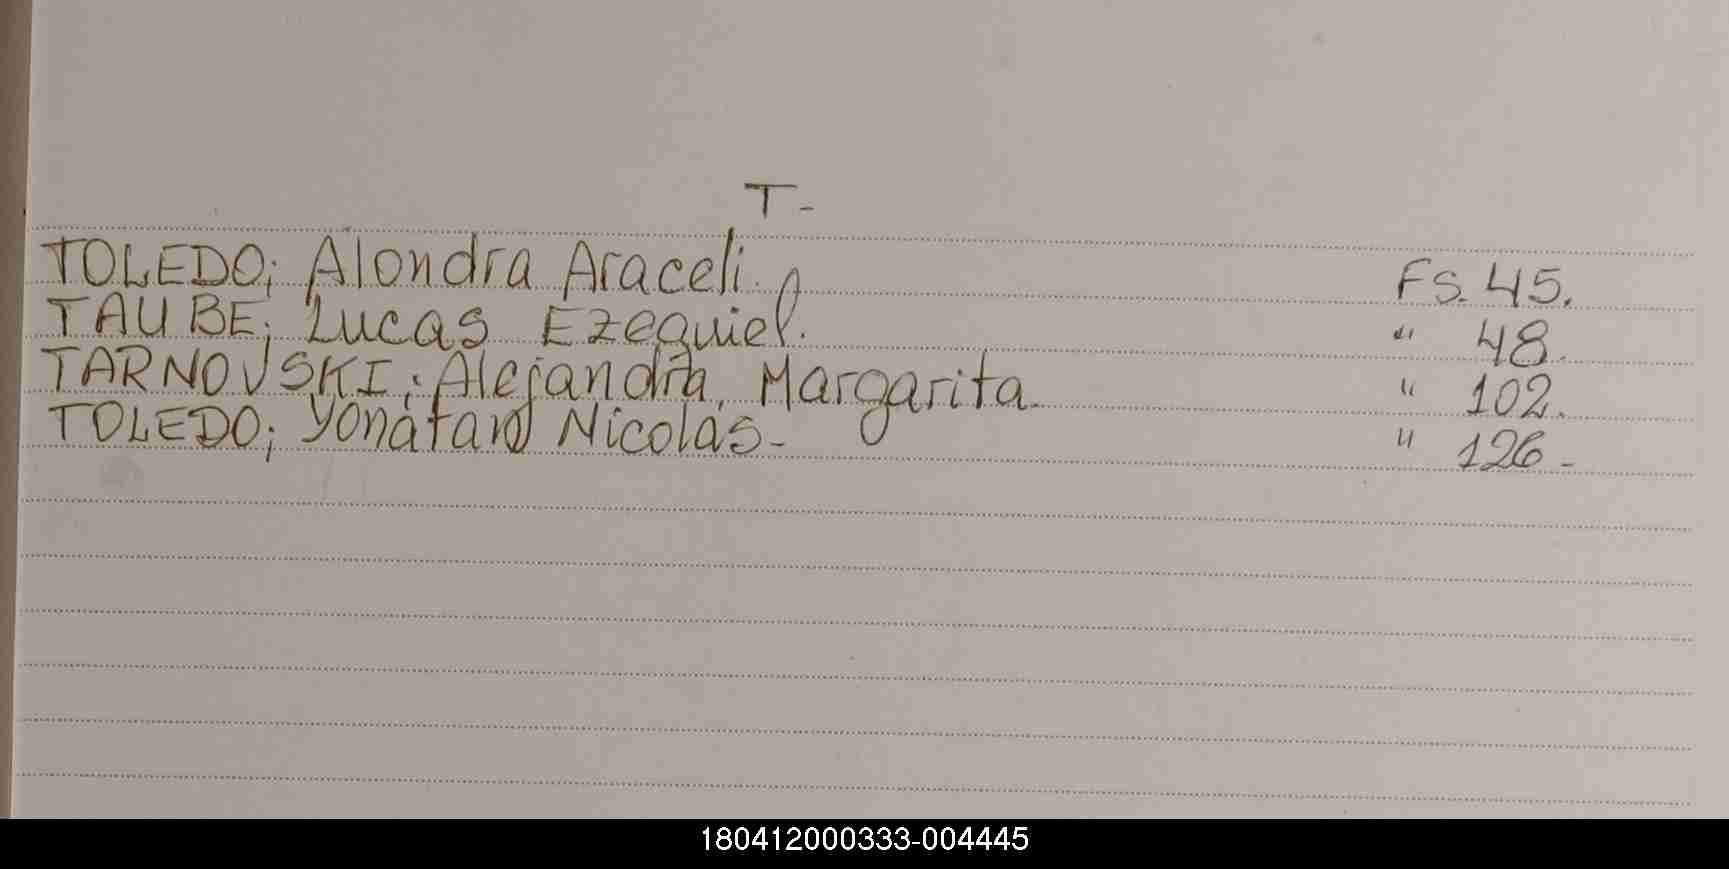 T-
TOLEDO; Alondra Araceli. FS. 45.
TAUBE; Lucas Ezequiel. " 48.
TARNOVSKI; Alejandra, Margarita. " 102.
TOLEDO; Yonatan Nicolas- " 126-
180412000333-004445